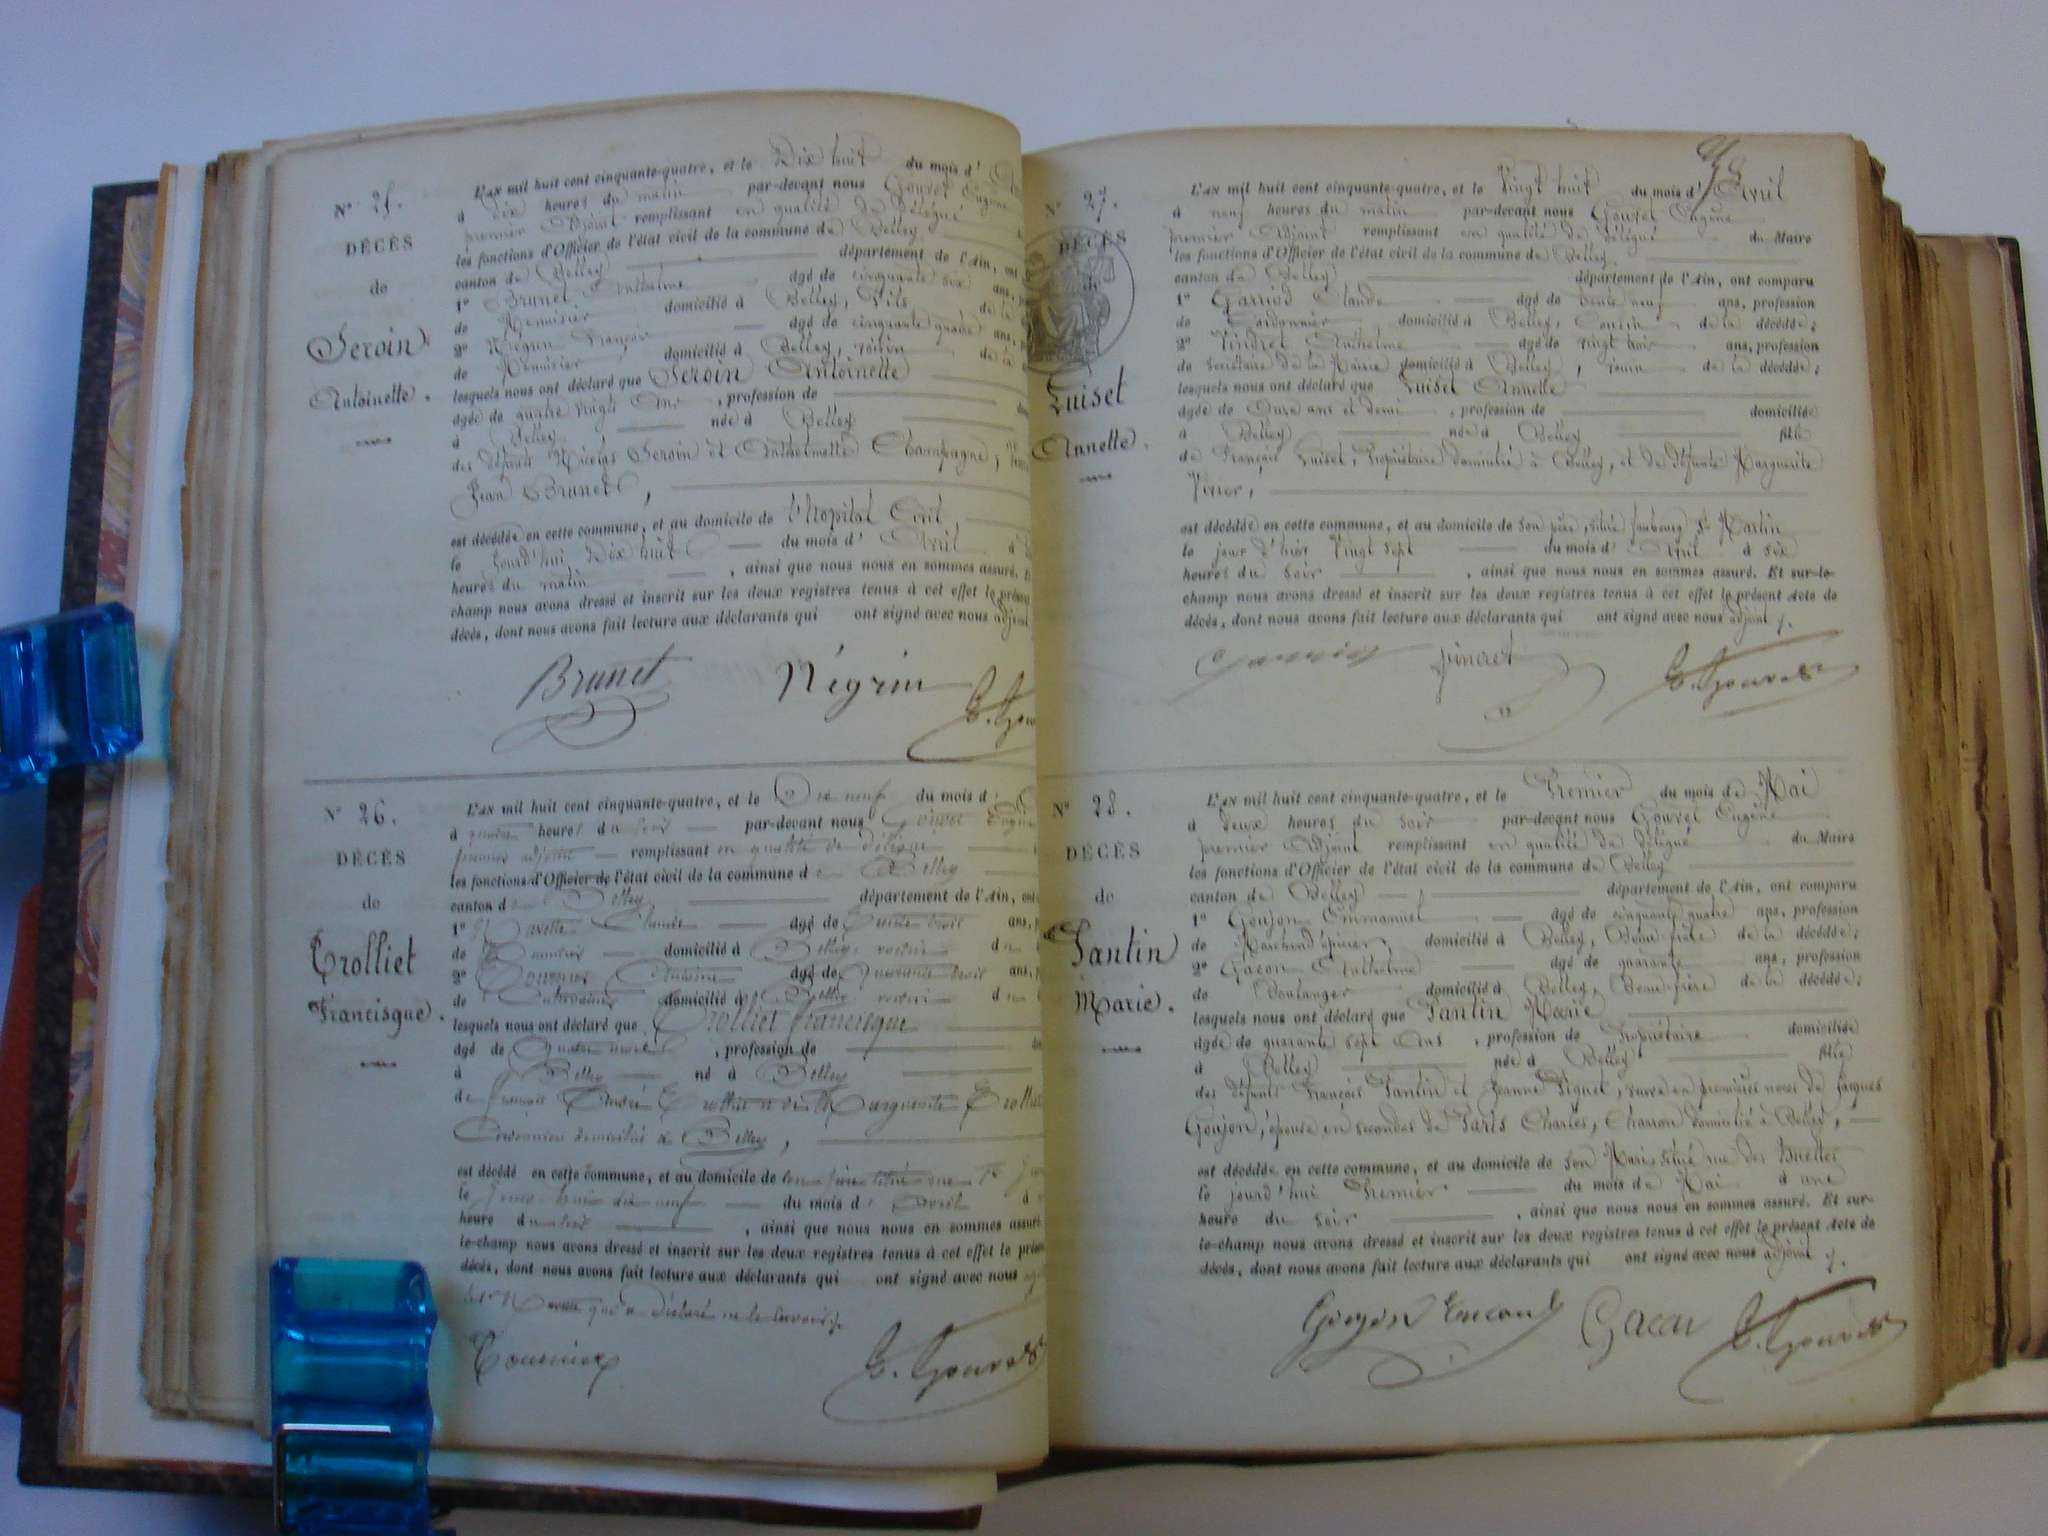 N° 25.
DÉCÈS
de
Seroin
Antoinette.
L'AN mil huit cent cinquante-quatre, et le Dix huit du mois d'
à dix heures du matin par-devant nous Gouvet Eugène
premier Adjoint remplissant en qualité de Délégué
les fonctions d'Officier de l'état civil de la commune de Belley
canton de Belley département de l'Ain, ont
1° Brunet Anthelme âgé de cinquante six ans,
de Menuisier domicilié à Belley, fils de la
2° Négrin François âgé de cinquante quatre ans,
de Menuisier domicilié à Belley, voisin de la
lesquels nous ont déclaré que Seroin Antoinette
âgée de quatre vingts ans, profession de
à Belley née à Belley
des défunts Nicolas Seroin et Anthelmette Champagne,
Jean Brunet,
est décédée en cette commune, et au domicile de l'hopital Civil
le jourd'hui Dix huit du mois d'Avril à
heures du matin, ainsi que nous nous en sommes assuré.
champ nous avons dressé et inscrit sur les deux registres tenus à cet effet le présent
décès, dont nous avons fait lecture aux déclarants qui ont signé avec nous adjoint
Brunet Négrin E. Gouv
N° 26.
DÉCÈS
de
Trolliet
Francisque.
L'AN mil huit cent cinquante-quatre, et le Dix neuf du mois d'
à quatre heures du soir par-devant nous Gouvet Eugène
premier adjoint remplissant en qualité de délégué
les fonctions d'Officier de l'état civil de la commune de Belley
canton de Belley département de l'Ain, ont
1° Claude âgé de trente trois ans,
de domicilié à Belley voisin du
2° Tournier Antoine âgé de quarante trois ans,
de domicilié à Belley voisin du
lesquels nous ont déclaré que Trolliet francisque
âgé de quatre mois, profession de
à Belley né à Belley
de françois André Trolliet et de Marguerite
Cordonniers domiciliés à Belley,
est décédé en cette commune, et au domicile de son père situé rue
le jourd'hui dix neuf du mois d'avril à
heure du soir, ainsi que nous nous en sommes assuré
le-champ nous avons dressé et inscrit sur les deux registres tenus à cet effet le présent
décès, dont nous avons fait lecture aux déclarants qui ont signé avec nous
qui a déclaré ne le savoir
Tournier E. Gouvet
N° 27.
DÉCÈS
de
Luiset
Annette.
L'AN mil huit cent cinquante-quatre, et le Vingt huit du mois d'Avril
à neuf heures du matin par-devant nous Gouvet Eugène
premier Adjoint remplissant en qualité de délégué du Maire
les fonctions d'Officier de l'état civil de la commune de Belley
canton de Belley département de l'Ain, ont comparu
1° Garriod Claude âgé de trente neuf ans, profession
de Cordonnier domicilié à Belley, Cousin de la décédée;
2° Vindret Anthelme âgé de vingt ans, profession
de Secrétaire de la Mairie domicilié à Belley, voisin de la décédée;
lesquels nous ont déclaré que Luiset Annette
âgée de Onze ans et demi, profession de domiciliée
à Belley née à Belley fille
de François Luiset, Propriétaire domicilié à Belley, et de défunte Marguerite
est décédée en cette commune, et au domicile de son père, situé faubourg St Martin
le jour d'hier vingt sept du mois d'Avril à six
heures du soir, ainsi que nous nous en sommes assuré. Et sur-le-
champ nous avons dressé et inscrit sur les deux registres tenus à cet effet le présent Acte de
décès, dont nous avons fait lecture aux déclarants qui ont signé avec nous adjoint
E. Gouvet
N° 28.
DÉCÈS
de
Tantin
Marie.
L'AN mil huit cent cinquante-quatre, et le Premier du mois de Mai
à deux heures du soir par-devant nous Gouvet Eugène
premier Adjoint remplissant en qualité de délégué du Maire
les fonctions d'Officier de l'état civil de la commune de Belley
canton de Belley département de l'Ain, ont comparu
1° Goujon Emmanuel âgé de cinquante quatre ans, profession
de Marchand épicier, domicilié à Belley, Beau-frère de la décédée;
2° Gacon Anthelme âgé de quarante ans, profession
de Boulanger domicilié à Belley, Beau-frère de la décédée;
lesquels nous ont déclaré que Tantin Marie
âgée de quarante sept Ans, profession de Propriétaire domiciliée
à Belley née à Belley fille
des défunts François Tantin et Jeanne Piquet, veuve en premières noces de Jacques
Goujon, épouse en secondes de Paris Charles, Charron domicilié à Belley,
est décédée en cette commune, et au domicile de son Mari, situé rue des
le jourd'hui Premier du mois de Mai à une
heure du soir, ainsi que nous nous en sommes assuré. Et sur-
le-champ nous avons dressé et inscrit sur les deux registres tenus à cet effet le présent Acte de
décès, dont nous avons fait lecture aux déclarants qui ont signé avec nous adjoint
Goujon Gacon E. Gouvet